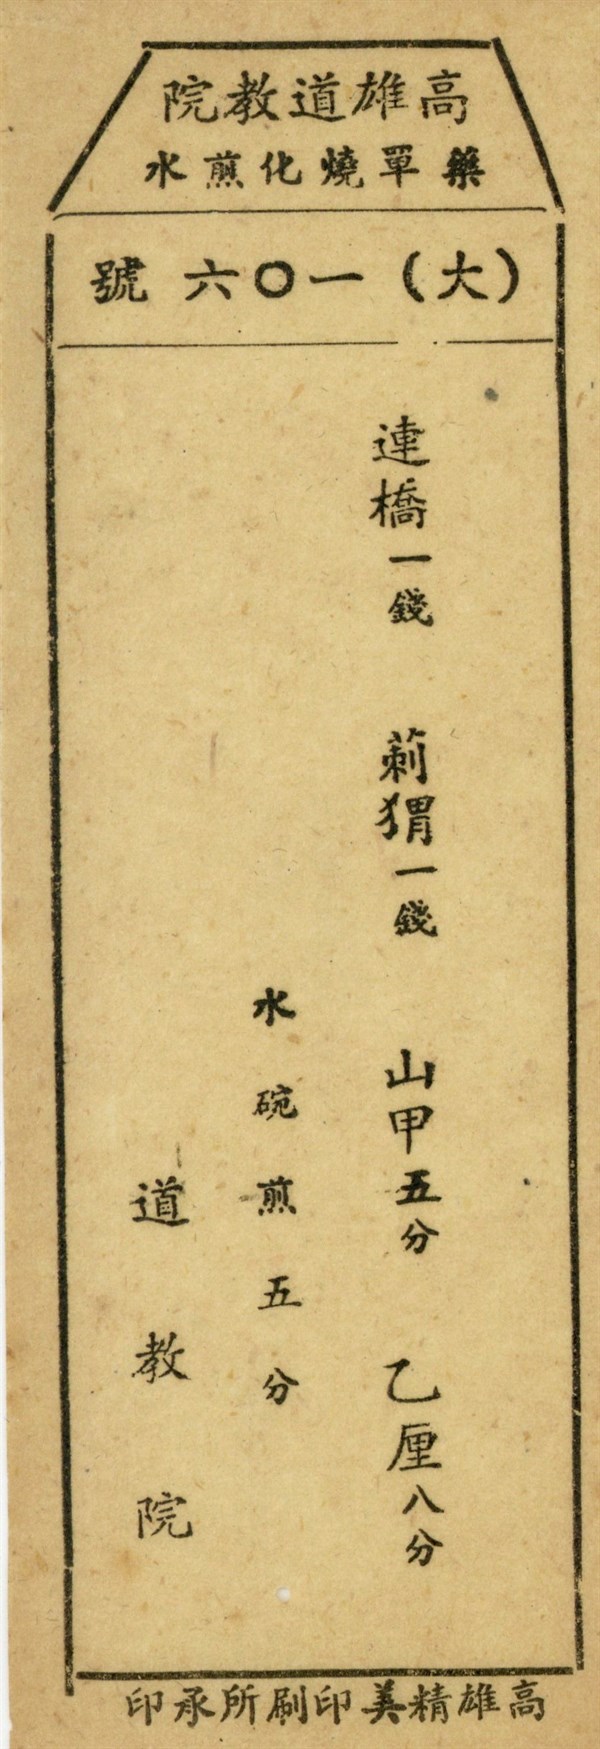 高雄道教院
藥單燒化煎水
(大)一〇六號
連橋一錢 莿猬一錢 山甲五分 乙厘八分
水碗煎五分
道教院
高雄精美印刷所承印